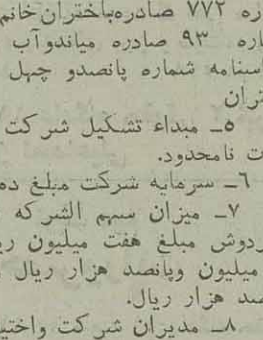 ره ۷۷۲ صادره‌باختران‌خانم
ماره ۹۳ صادره میاندوآب
اسنامه شماره پانصدو چهل
تران
۵ــ مبداء تشکیل شرکت
ت نامحدود.
۶ــ سرمایه شرکت مبلغ ده
۷ــ میزان سهم الشرکه
ردوش مبلغ هفت میلیون ری
میلیون وپانصد هزار ریال
صد هزار ریال.
۸ــ مدیران شرکت واختی